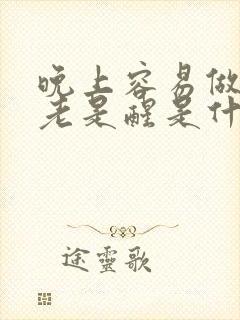 晚上容易做
老是醒是什
途灵歌